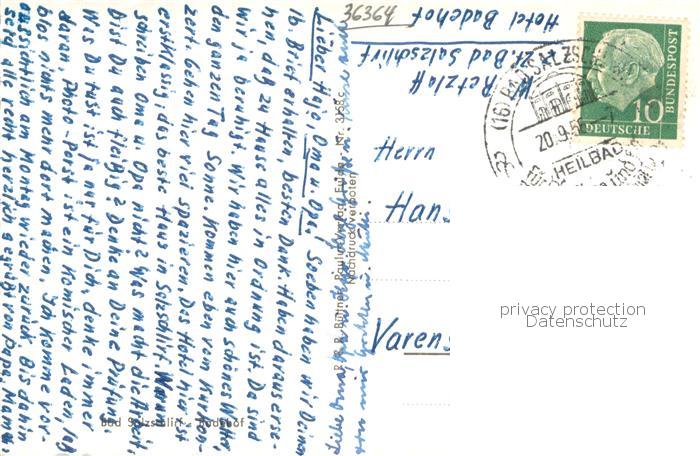 36364
Hotel Badehof
z. Zt. Bad Salzschlirf
W. Retzlaff
(16) BAD SALZSCHLIRF
20.9.5
HEILBAD
DEUTSCHE
BUNDESPOST
10
Herrn
Hans
Varens
privacy protection
Datenschutz
Lieber Hajo, Oma u. Opa! Soeben haben wir Deinen
lb. Brief erhalten, besten Dank. Haben daraus erse-
hen, daß zu Hause alles in Ordnung ist. Da sind
wir ja beruhigt. Wir haben hier auch schönes Wetter,
den ganzen Tag Sonne. Kommen eben vom Kurkon-
zert. Gehen hier viel spazieren. Das Hotel hier ist
erstklassig; das beste Haus in Salzschlirf. Warum
schreiben Oma u. Opa nicht? Was macht die Arbeit,
bist Du auch fleißig? Denke an Deine Prüfung.
Was Du tust ist ja nur für Dich, denke immer
daran. Photo-Porst ist ein komischer Laden, sag
bloß nichts mehr dort machen. Ich komme vor-
aussichtlich am Montag wieder zurück. Bis dahin
seid alle recht herzlich gegrüßt von Papa. Mama.
Bad Salzschlirf - Badehof
Nachdruck verboten